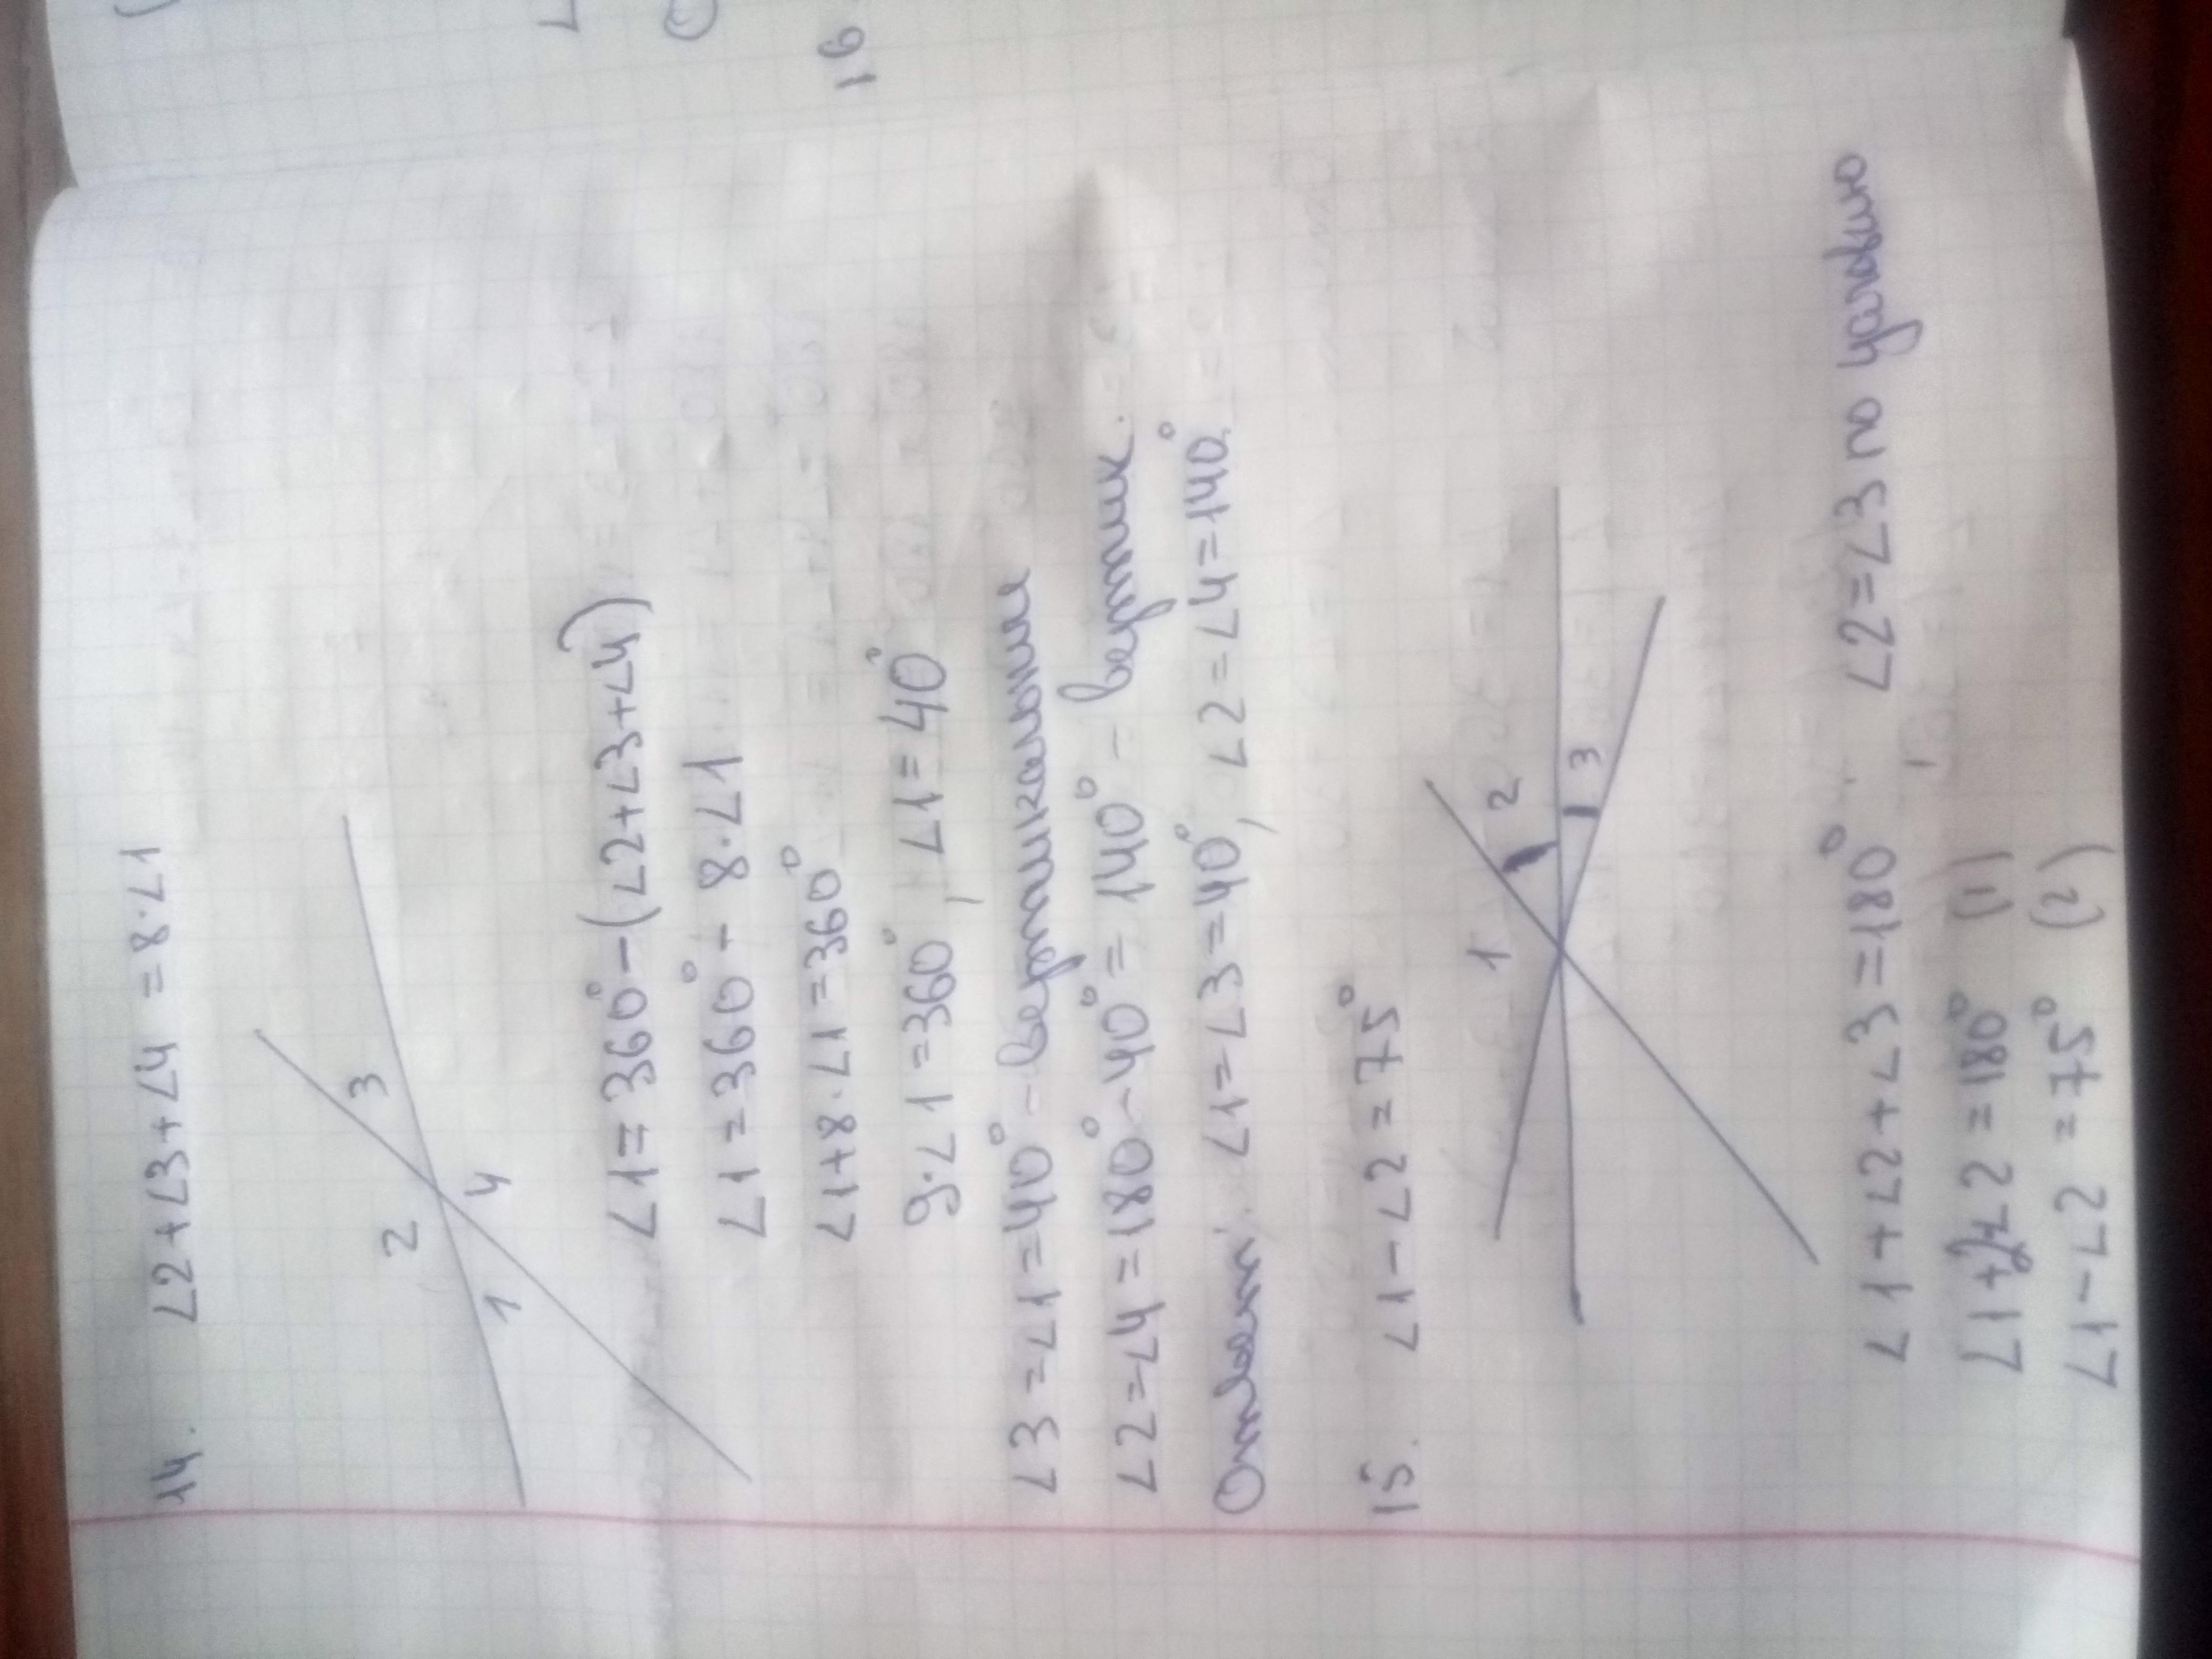 14. ∠2+∠3+∠4 = 8·∠1
3
2
4
1
∠1 = 360° - (∠2+∠3+∠4)
∠1 = 360° - 8·∠1
∠1+8·∠1 = 360°
9·∠1 = 360°, ∠1 = 40°
∠3 = ∠1 = 40° - вертикальные
∠2 = ∠4 = 180° - 40° = 140° - вертик.
Ответ: ∠1 = ∠3 = 40°, ∠2 = ∠4 = 140°.
15. ∠1 - ∠2 = 75°
1
2
3
∠1 + ∠2 + ∠3 = 180° ∠2 = ∠3 по условию
∠1 + 2∠2 = 180° (1)
∠1 - ∠2 = 75° (2)
16